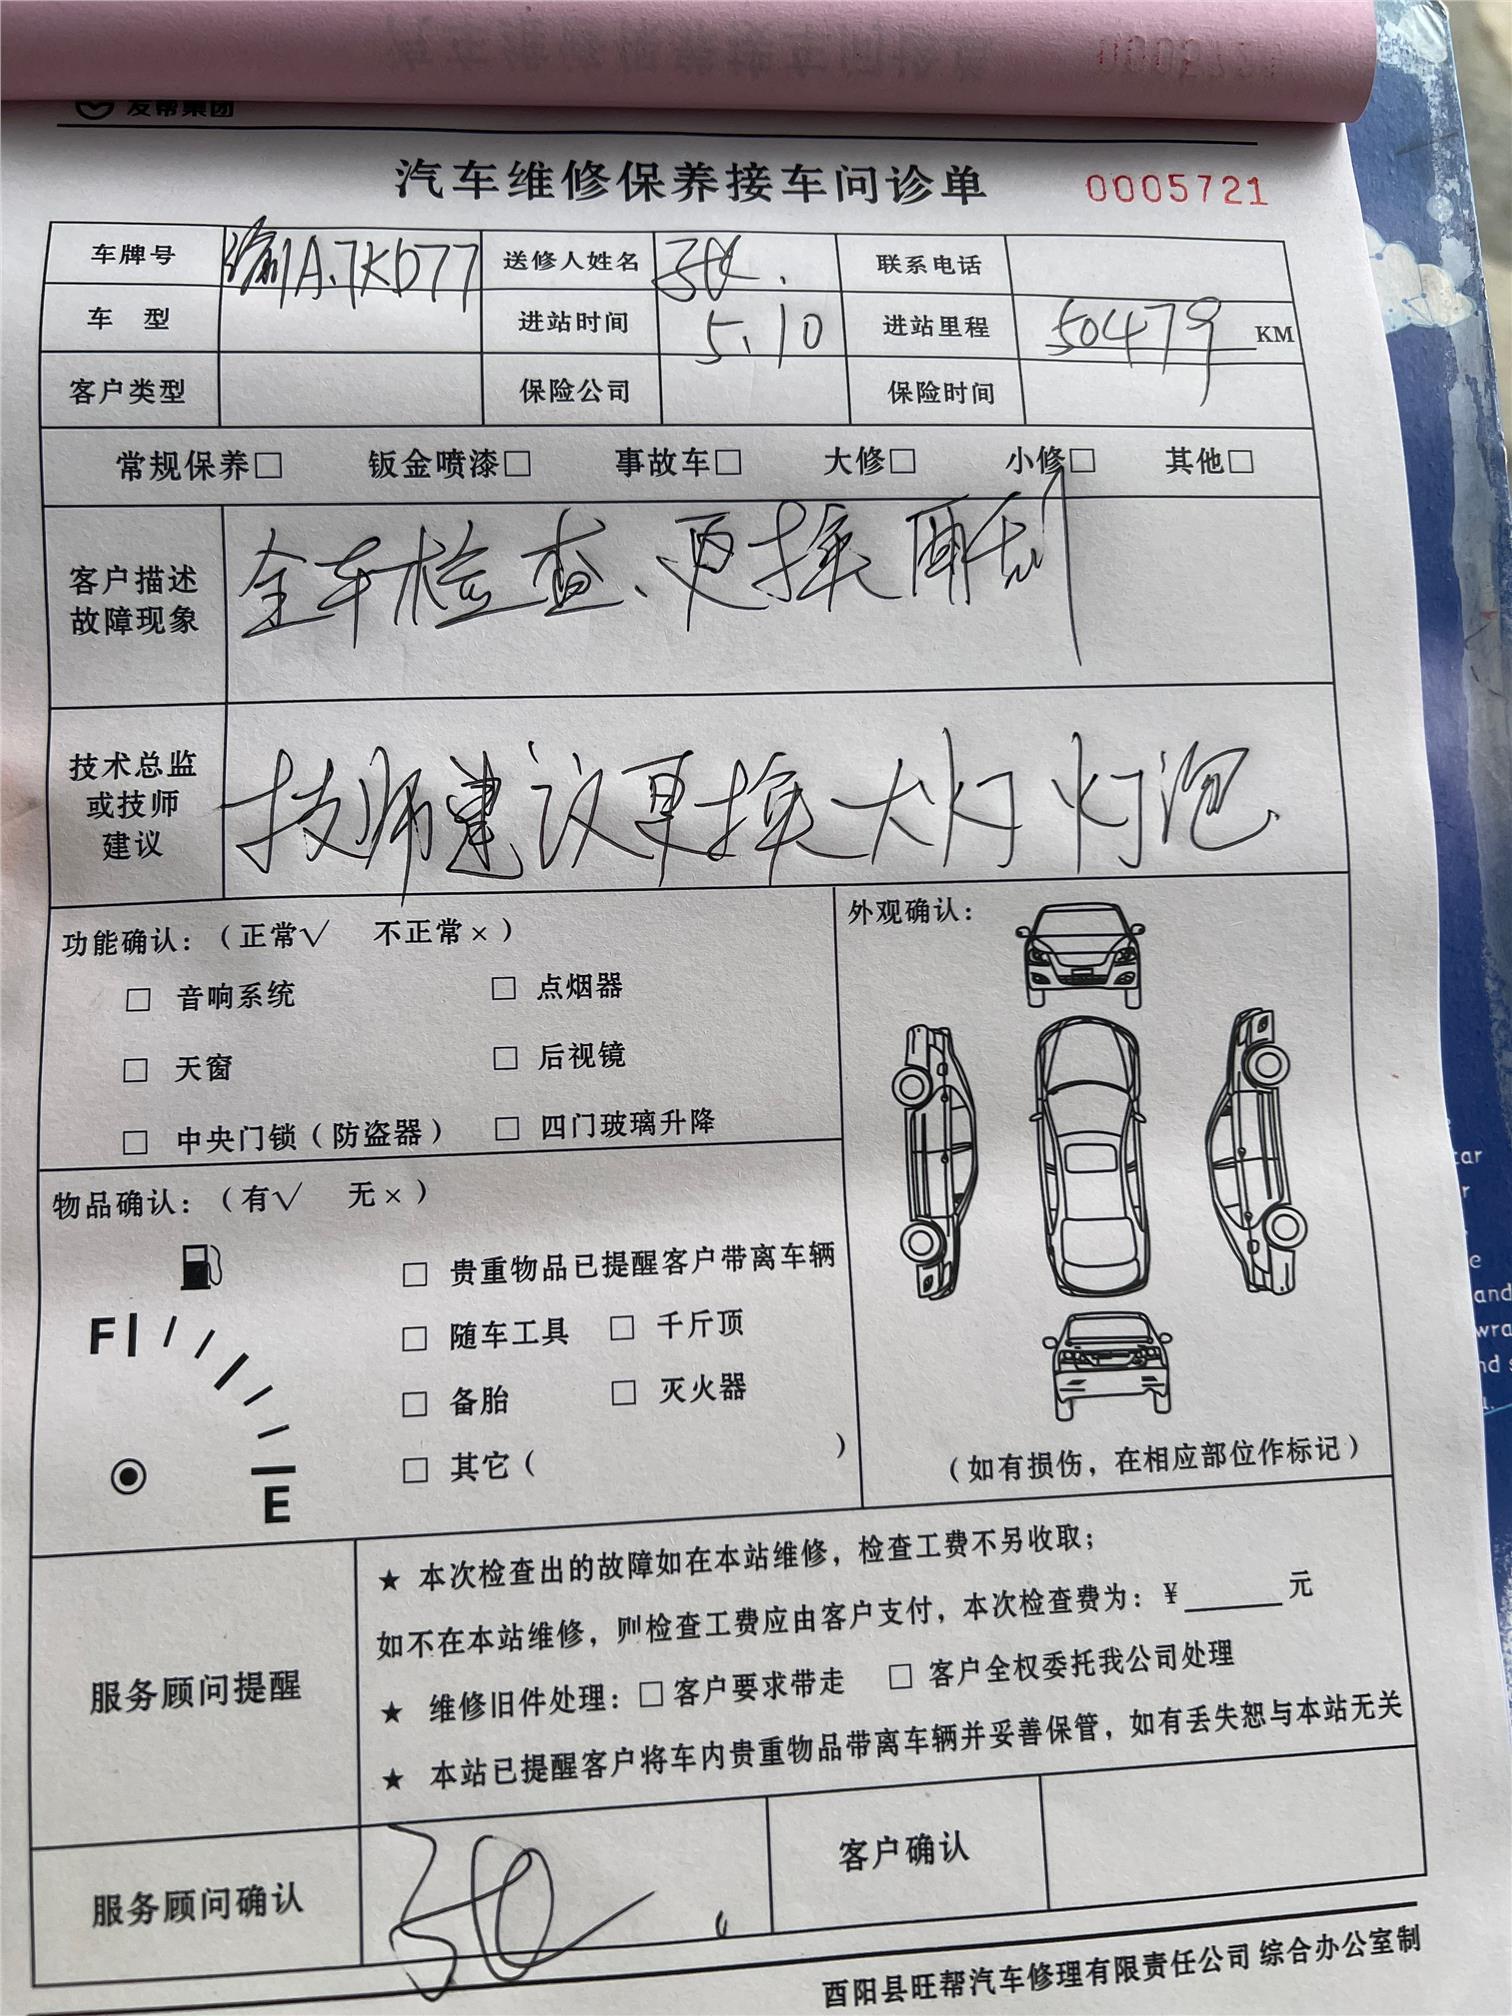 友帮集团
汽车维修保养接车问诊单 0005721
车牌号 渝A.7KD77 送修人姓名 联系电话
车 型 进站时间 5.10 进站里程 50479 KM
客户类型 保险公司 保险时间
常规保养□ 钣金喷漆□ 事故车□ 大修□ 小修□ 其他□
客户描述
故障现象
全车检查、更换雨刮
技术总监
或技师
建议
技师建议更换大灯灯泡
功能确认：（正常√ 不正常×）
□ 音响系统 □ 点烟器
□ 天窗 □ 后视镜
□ 中央门锁（防盗器） □ 四门玻璃升降
外观确认：
（如有损伤，在相应部位作标记）
物品确认：（有√ 无×）
F
E
□ 贵重物品已提醒客户带离车辆
□ 随车工具 □ 千斤顶
□ 备胎 □ 灭火器
□ 其它（ ）
服务顾问提醒
★ 本次检查出的故障如在本站维修，检查工费不另收取；
如不在本站维修，则检查工费应由客户支付，本次检查费为：¥______元
★ 维修旧件处理：□客户要求带走 □ 客户全权委托我公司处理
★ 本站已提醒客户将车内贵重物品带离车辆并妥善保管，如有丢失恕与本站无关
服务顾问确认 客户确认
酉阳县旺帮汽车修理有限责任公司 综合办公室制